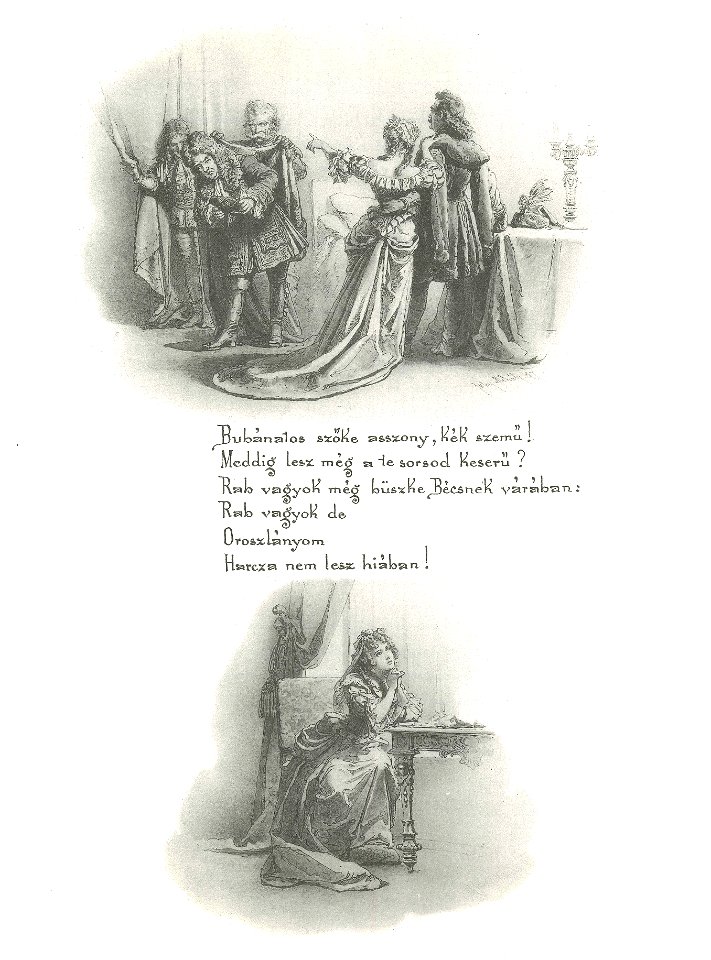 Bubánatos szőke asszony, kék szemű!
Meddig lesz még a te sorsod keserű?
Rab vagyok még büszke Bécsnek várában:
Rab vagyok de
Oroszlányom
Harcza nem lesz hiában!